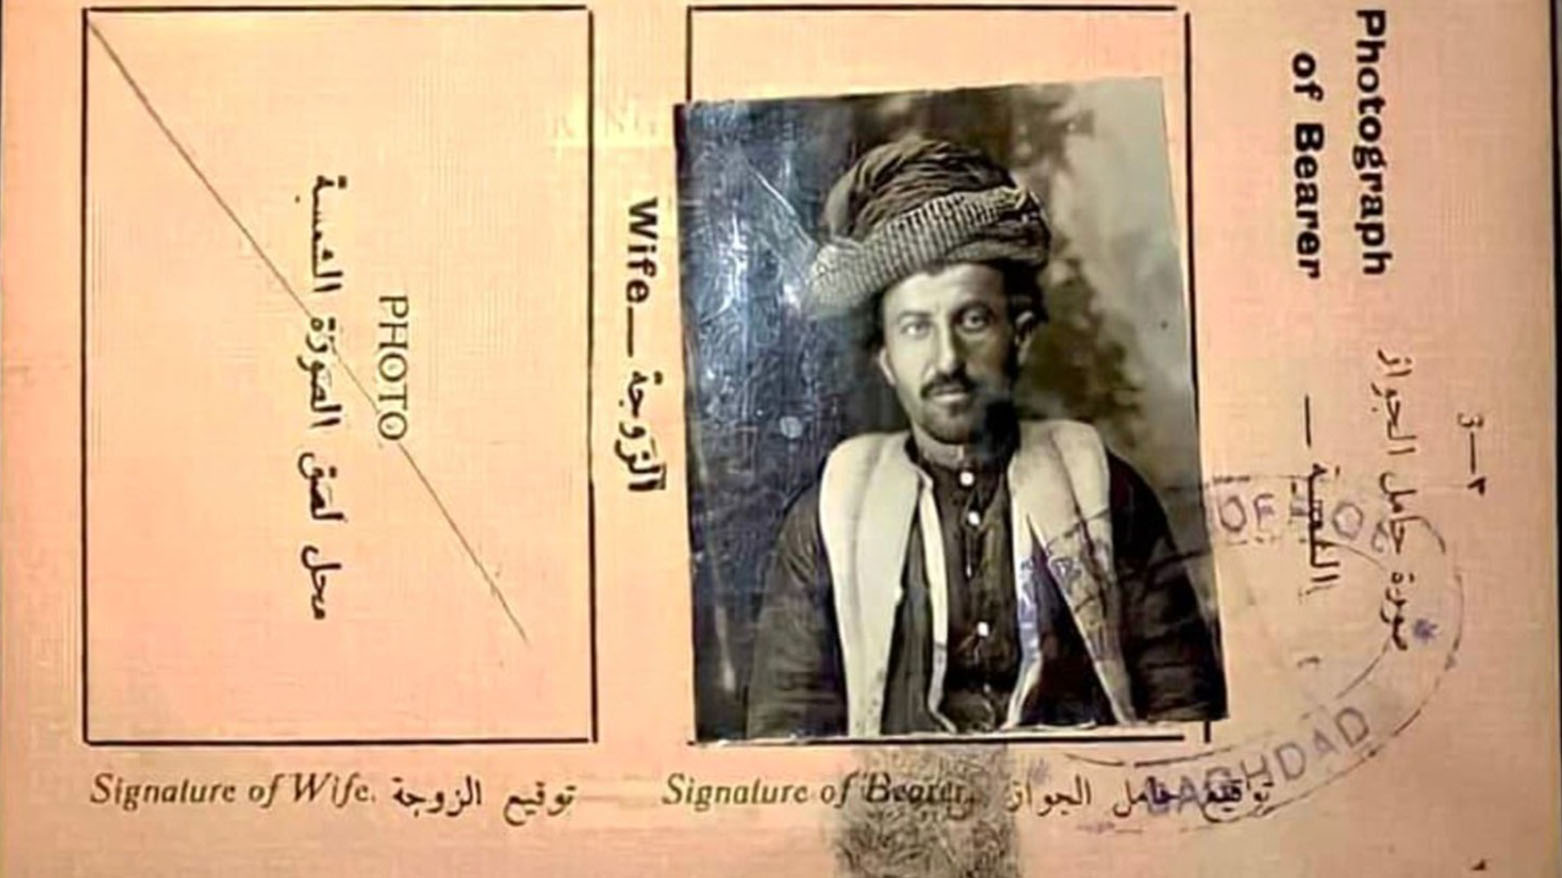 ٢—3
Photograph of Bearer
صورة حامل الجواز
Wife—الزوجة
PHOTO
محل لصق الصورة الشمسية
Signature of Wife. توقيع الزوجة
Signature of Bearer. توقيع حامل الجواز
BAGHDAD